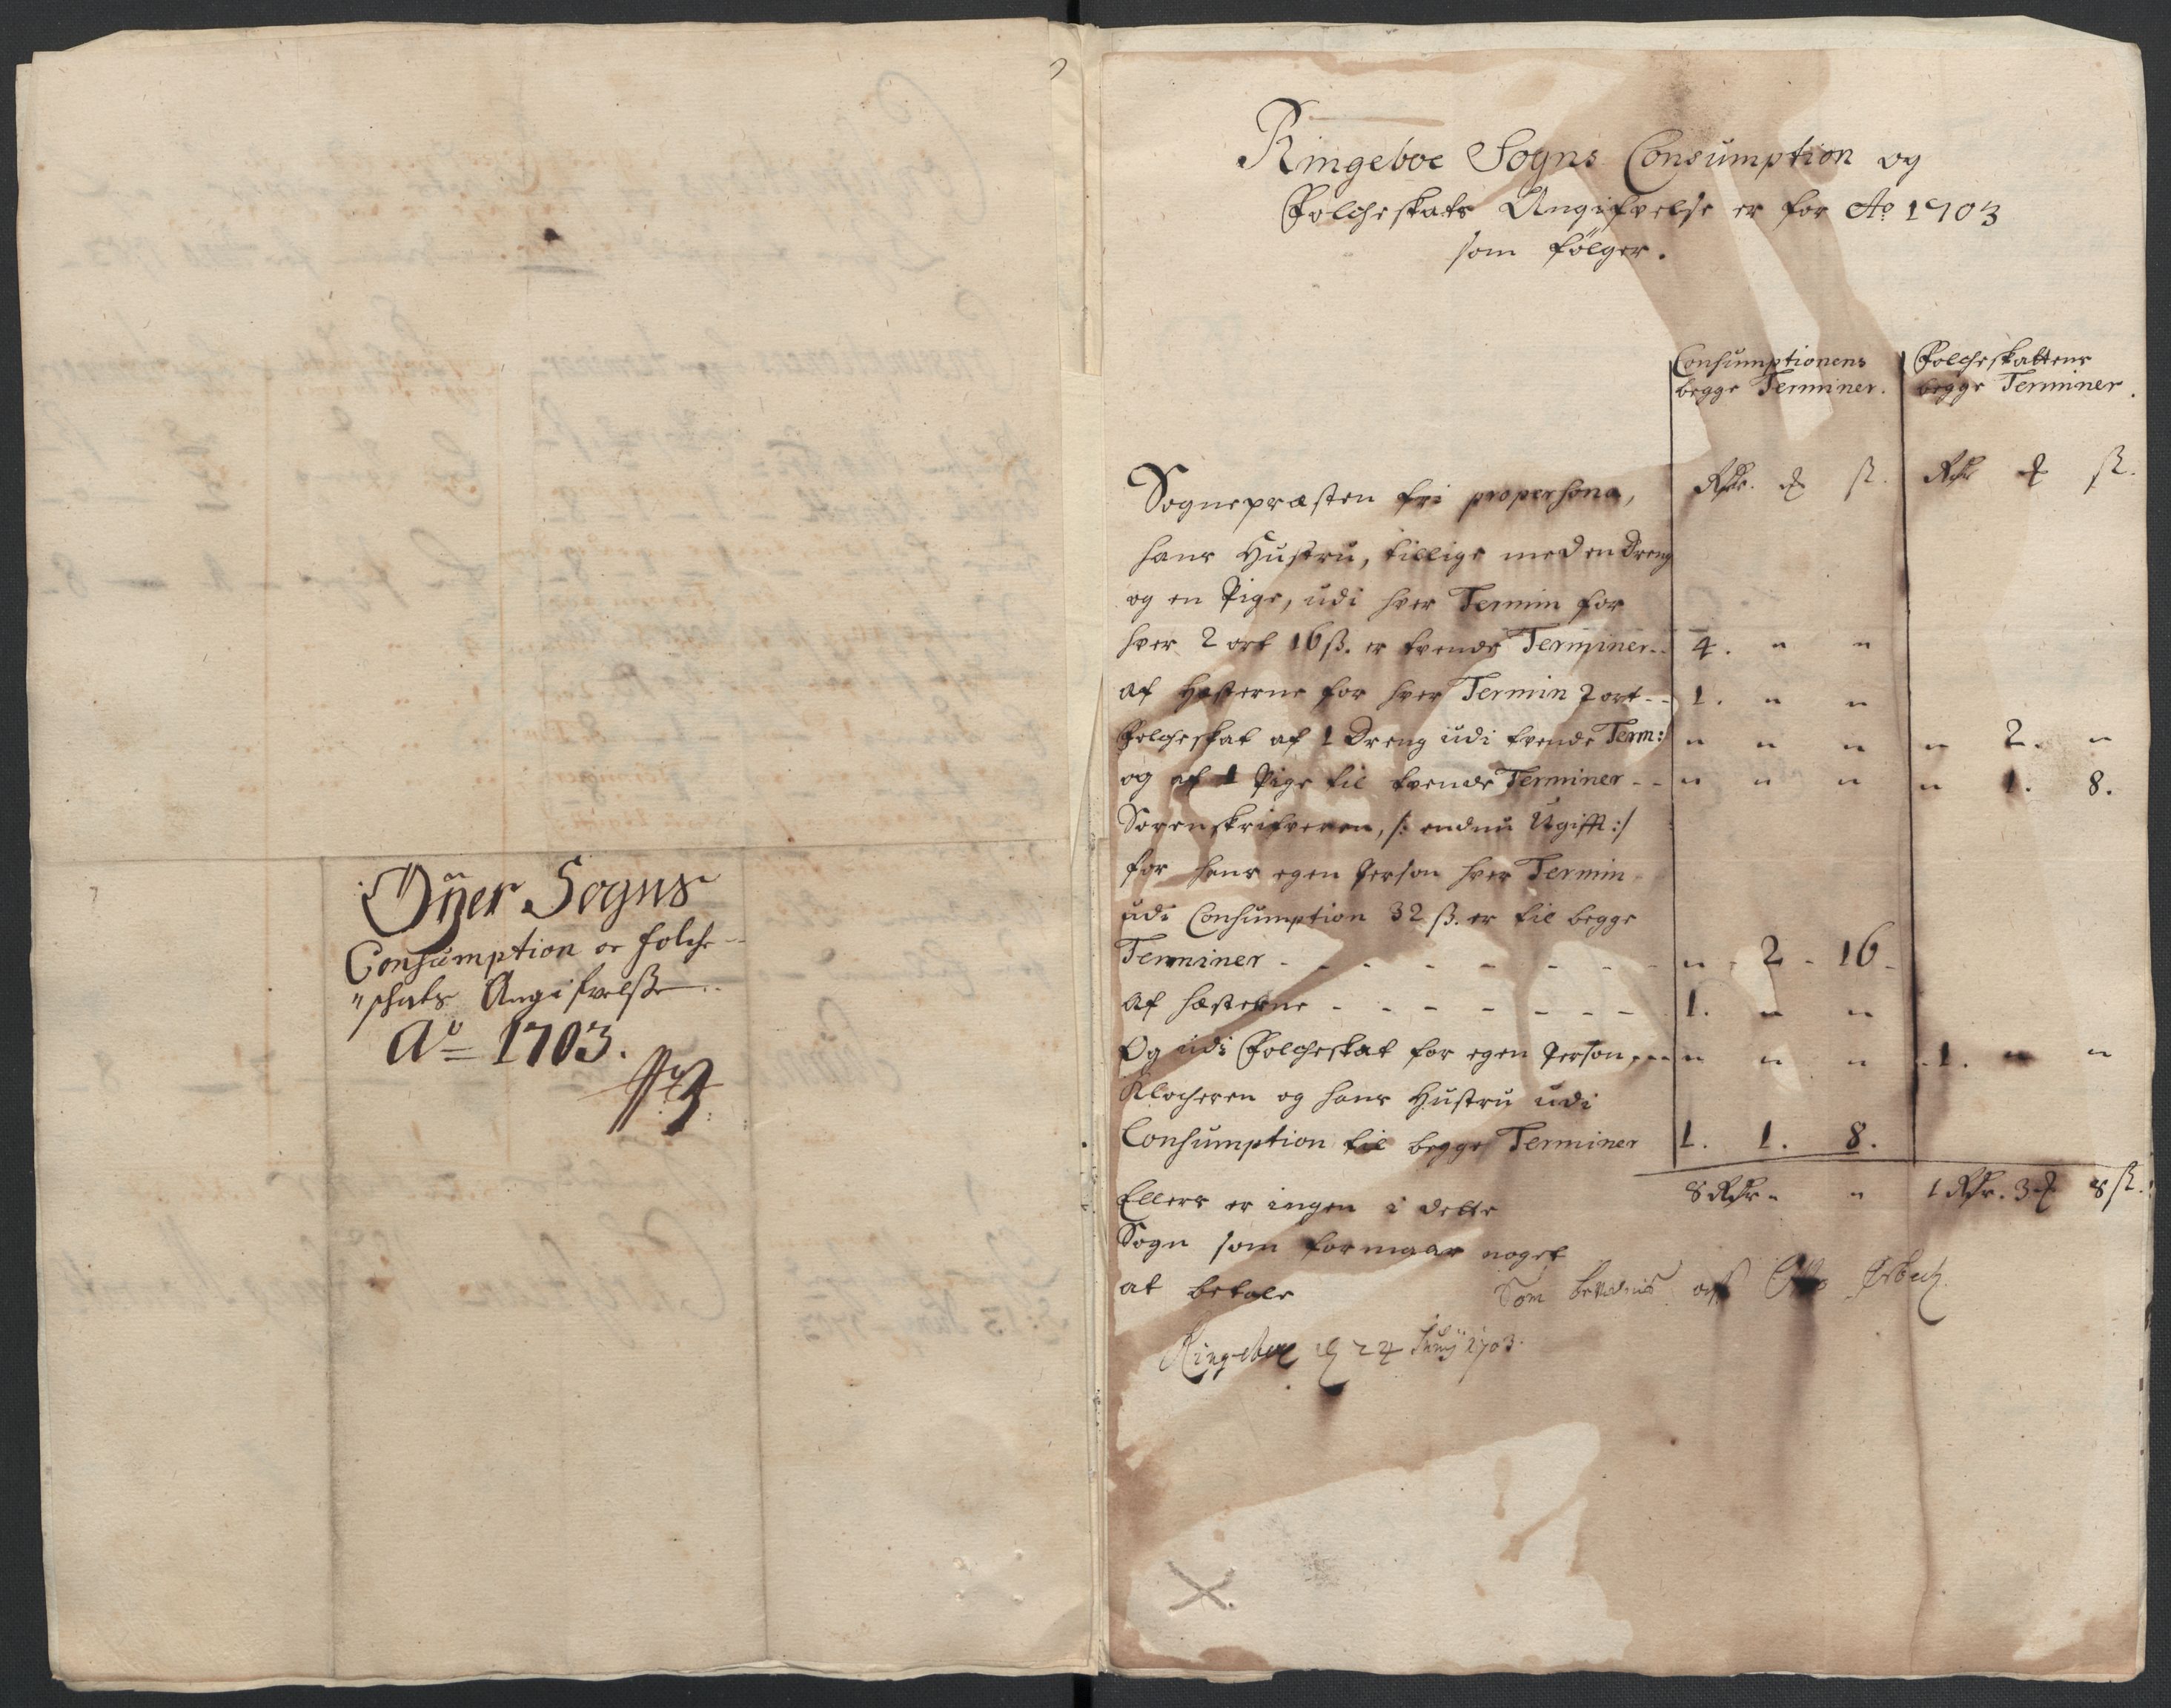 Öÿer Sogns
Consumption oc folche-
"schats Angifvelsße
Ao 1703.
Ringeboe Sogns Consumption og
Folcheskats Angifvelse er for Ao 1703
som følger.
Consumptionens Folcheskattens
begge Terminer. begge Terminer.
Sognepræsten fri propersona, Rdr. ß. Rdr ß.
hans Hustru, tillige med en Dreng
og en Pige, udi hver Termin for
hver 2 ort 16 ß. er tvende Terminer.. 4. " "
af Hæsterne for hver Termin 2 ort -- 1. " "
Folcheskat af 1 Dreng udi tvende Term: " " " " 2. "
og af 1 Pige til tvende Terminer -- " " " " 1. 8.
Sorenskrifveren, /: endnu Ugifft :/
for hans egen Person hver Termin
udi Consumption 32 ß. er til begge
Terminer - - - - - - - - " - 2 - 16 -
Af hæsterne - - - - - - - 1. " "
Og udi Folcheskat for egen Person,-- " " " - 1. " "
Klocheren og hans Hustru udi
Consumption til begge Terminer 1. 1. 8.
Ellers er ingen i dette 8 Rdr - " 1 Rdr. 3 8 ß.
Sogn som formaar noget
at betale Som bekiendis aff Otto
Ringeboe d 24 Junij 1703.